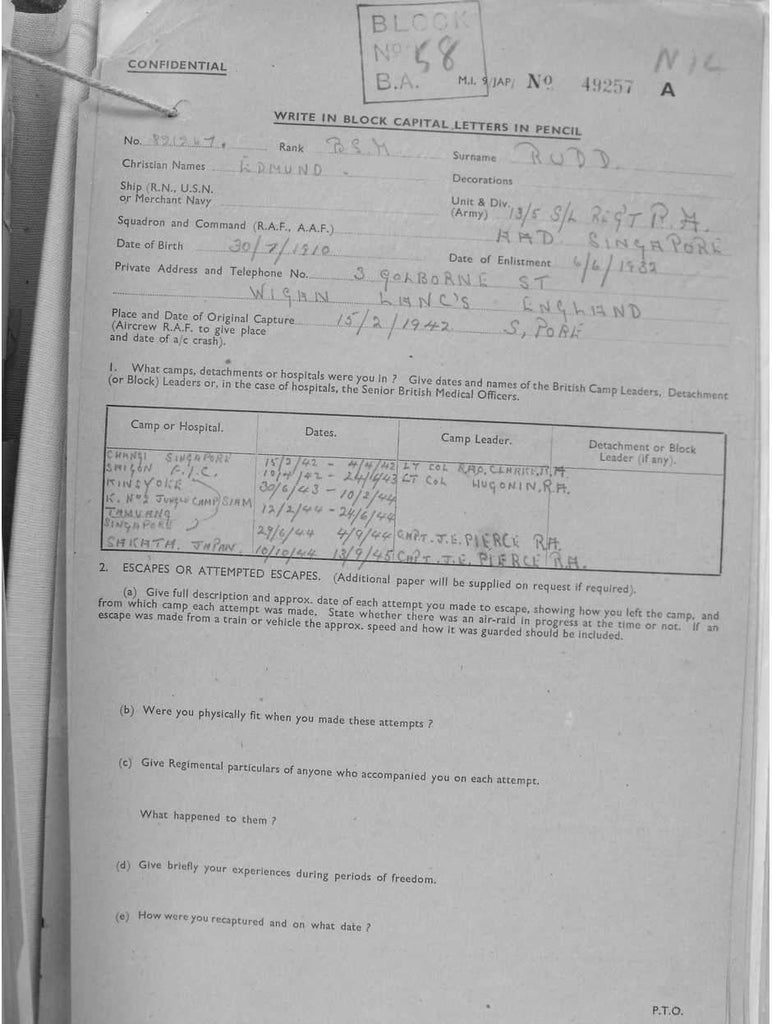 BLOCK
Nº 68
B.A.
NIL
CONFIDENTIAL
M.I. 9/JAP/ Nº 49257 A
WRITE IN BLOCK CAPITAL LETTERS IN PENCIL
No. Rank B.S.M Surname RUDD.
Christian Names EDMUND. Decorations
Ship (R.N., U.S.N. or Merchant Navy
Unit & Div. (Army) 13/5 S/L REG'T R.A.
Squadron and Command (R.A.F., A.A.F.) SINGAPORE
Date of Birth 30/7/1910 Date of Enlistment 6/6/1932
Private Address and Telephone No. 3 GOLBORNE ST
WIGAN LANC'S ENGLAND
Place and Date of Original Capture 15/2/1942 S, PORE
(Aircrew R.A.F. to give place
and date of a/c crash).
1. What camps, detachments or hospitals were you in ? Give dates and names of the British Camp Leaders, Detachment
(or Block) Leaders or, in the case of hospitals, the Senior British Medical Officers.
Camp or Hospital. Dates. Camp Leader. Detachment or Block
Leader (if any).
CHANGI SINGAPORE 15/2/42 - 4/4/42 LT COL CLARKE, R.A.
SAIGON F.I.C. 10/4/42 - LT COL HUGONIN, R.A.
KINSYOKE 30/6/43 - 10/2/44
K. Nº2 JUNGLE CAMP SIAM 12/2/44 - 24/6/44
TAMUANG
SINGAPORE 29/6/44 4/9/44 CAPT. J.E. PIERCE R.A.
SAKATA. JAPAN. 10/10/44 13/9/45 CAPT. J.E. PIERCE R.A.
2. ESCAPES OR ATTEMPTED ESCAPES. (Additional paper will be supplied on request if required).
(a) Give full description and approx. date of each attempt you made to escape, showing how you left the camp, and
from which camp each attempt was made. State whether there was an air-raid in progress at the time or not. If an
escape was made from a train or vehicle the approx. speed and how it was guarded should be included.
(b) Were you physically fit when you made these attempts ?
(c) Give Regimental particulars of anyone who accompanied you on each attempt.
What happened to them ?
(d) Give briefly your experiences during periods of freedom.
(e) How were you recaptured and on what date ?
P.T.O.